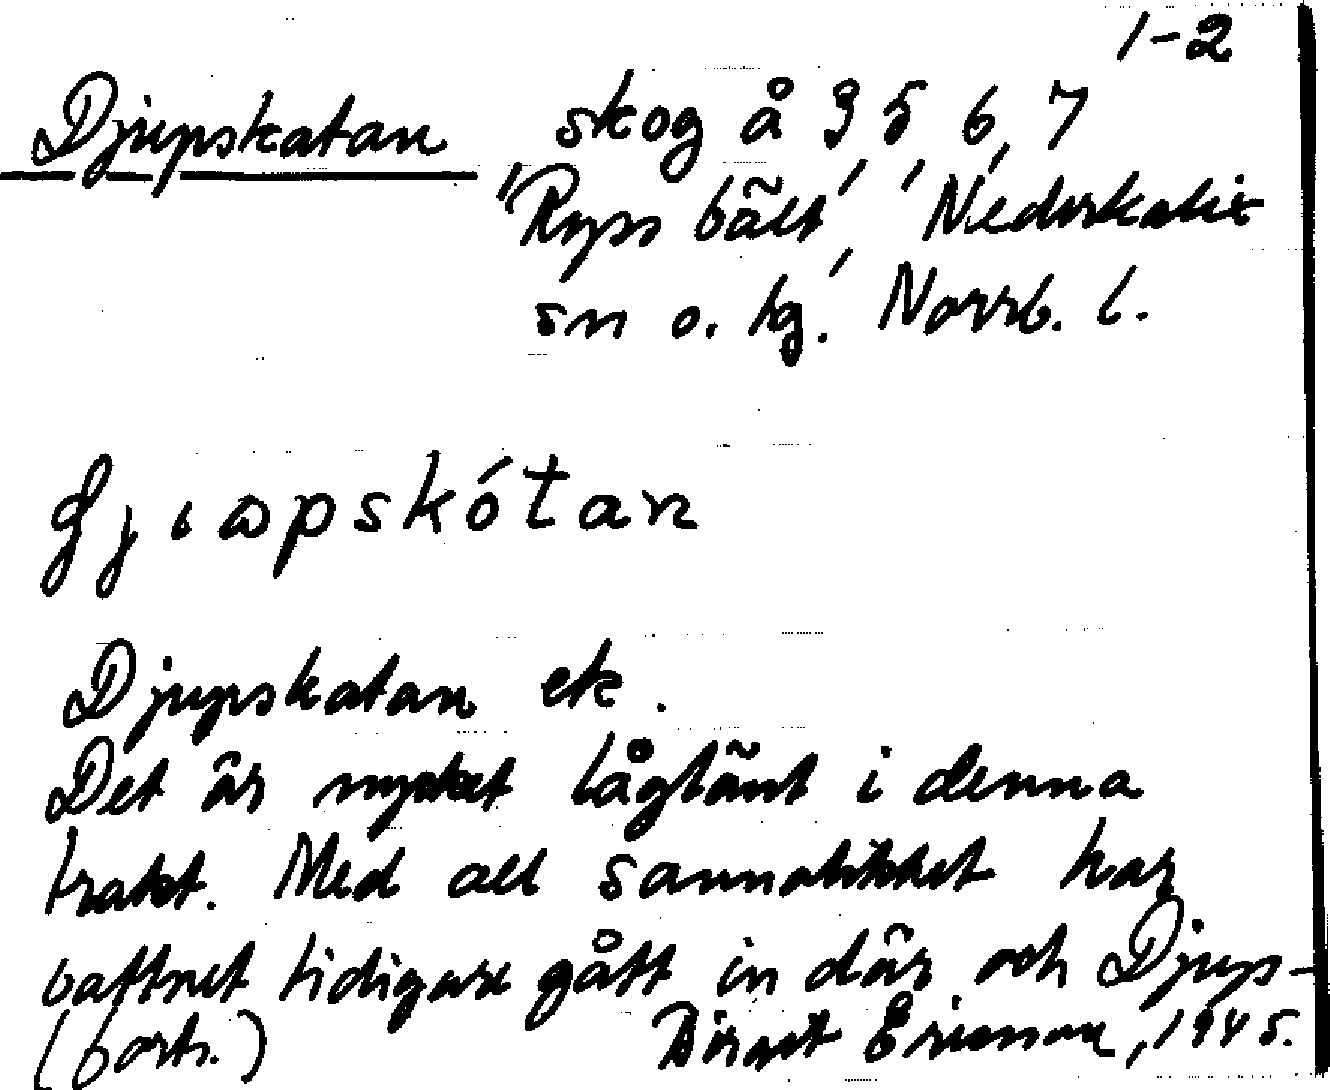 1-2
Djupskatan skog å 3, 5, 6, 7
"Ryssbält", Nederkalix
sn o. hg. Norrb. l.
Djupskatan ek.
Det är mycket låglänt i denna
trakt. Med all sannolikhet har
vattnet tidigare gått in där och Djups-
(forts.) Birgit Ericsson, 1945.